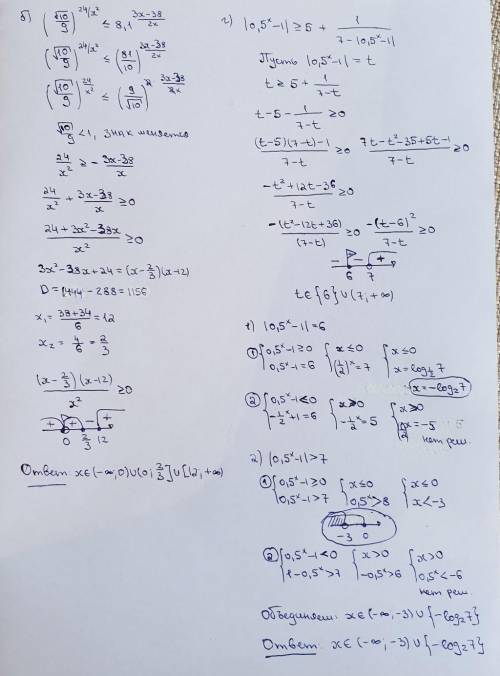 б) (√10/9)^(24/x²) ≤ 8,1^((3x-38)/2x)
(√10/9)^(24/x²) ≤ (81/10)^((3x-38)/2x)
(√10/9)^(24/x²) ≤ (9/√10)^(2·(3x-38)/2x)
√10/9 < 1, знак меняется
24/x² ≥ -(3x-38)/x
24/x² + (3x-38)/x ≥ 0
(24+3x²-38x)/x² ≥ 0
3x²-38x+24 = (x-2/3)(x-12)
D = 1444 - 288 = 1156
x₁ = (38+34)/6 = 12
x₂ = 4/6 = 2/3
(x-2/3)(x-12)/x² ≥ 0
+ + - +
0 2/3 12
Ответ: x∈(-∞;0)∪(0;2/3]∪[12;+∞)
г) |0,5ˣ-1| ≥ 5 + 1/(7-|0,5ˣ-1|)
Пусть |0,5ˣ-1| = t
t ≥ 5 + 1/(7-t)
t-5-1/(7-t) ≥ 0
((t-5)(7-t)-1)/(7-t) ≥ 0 (7t-t²-35+5t-1)/(7-t) ≥ 0
(-t²+12t-36)/(7-t) ≥ 0
-(t²-12t+36)/(7-t) ≥ 0 -(t-6)²/(7-t) ≥ 0
- - +
6 7
t∈{6}∪(7;+∞)
1) |0,5ˣ-1| = 6
① {0,5ˣ-1≥0 {x≤0 {x≤0
0,5ˣ-1=6 (1/2)ˣ=7 x=log_(1/2)7
x=-log₂7
② {0,5ˣ-1<0 {x>0 {x>0
-1/2ˣ+1=6 -1/2ˣ=5 1/2ˣ=-5
нет реш.
2) |0,5ˣ-1|>7
① {0,5ˣ-1≥0 {x≤0 {x≤0
0,5ˣ-1>7 0,5ˣ>8 x<-3
-3 0
② {0,5ˣ-1<0 {x>0 {x>0
1-0,5ˣ>7 -0,5ˣ>6 0,5ˣ<-6
нет реш.
Объединяем: x∈(-∞;-3)∪{-log₂7}
Ответ: x∈(-∞;-3)∪{-log₂7}